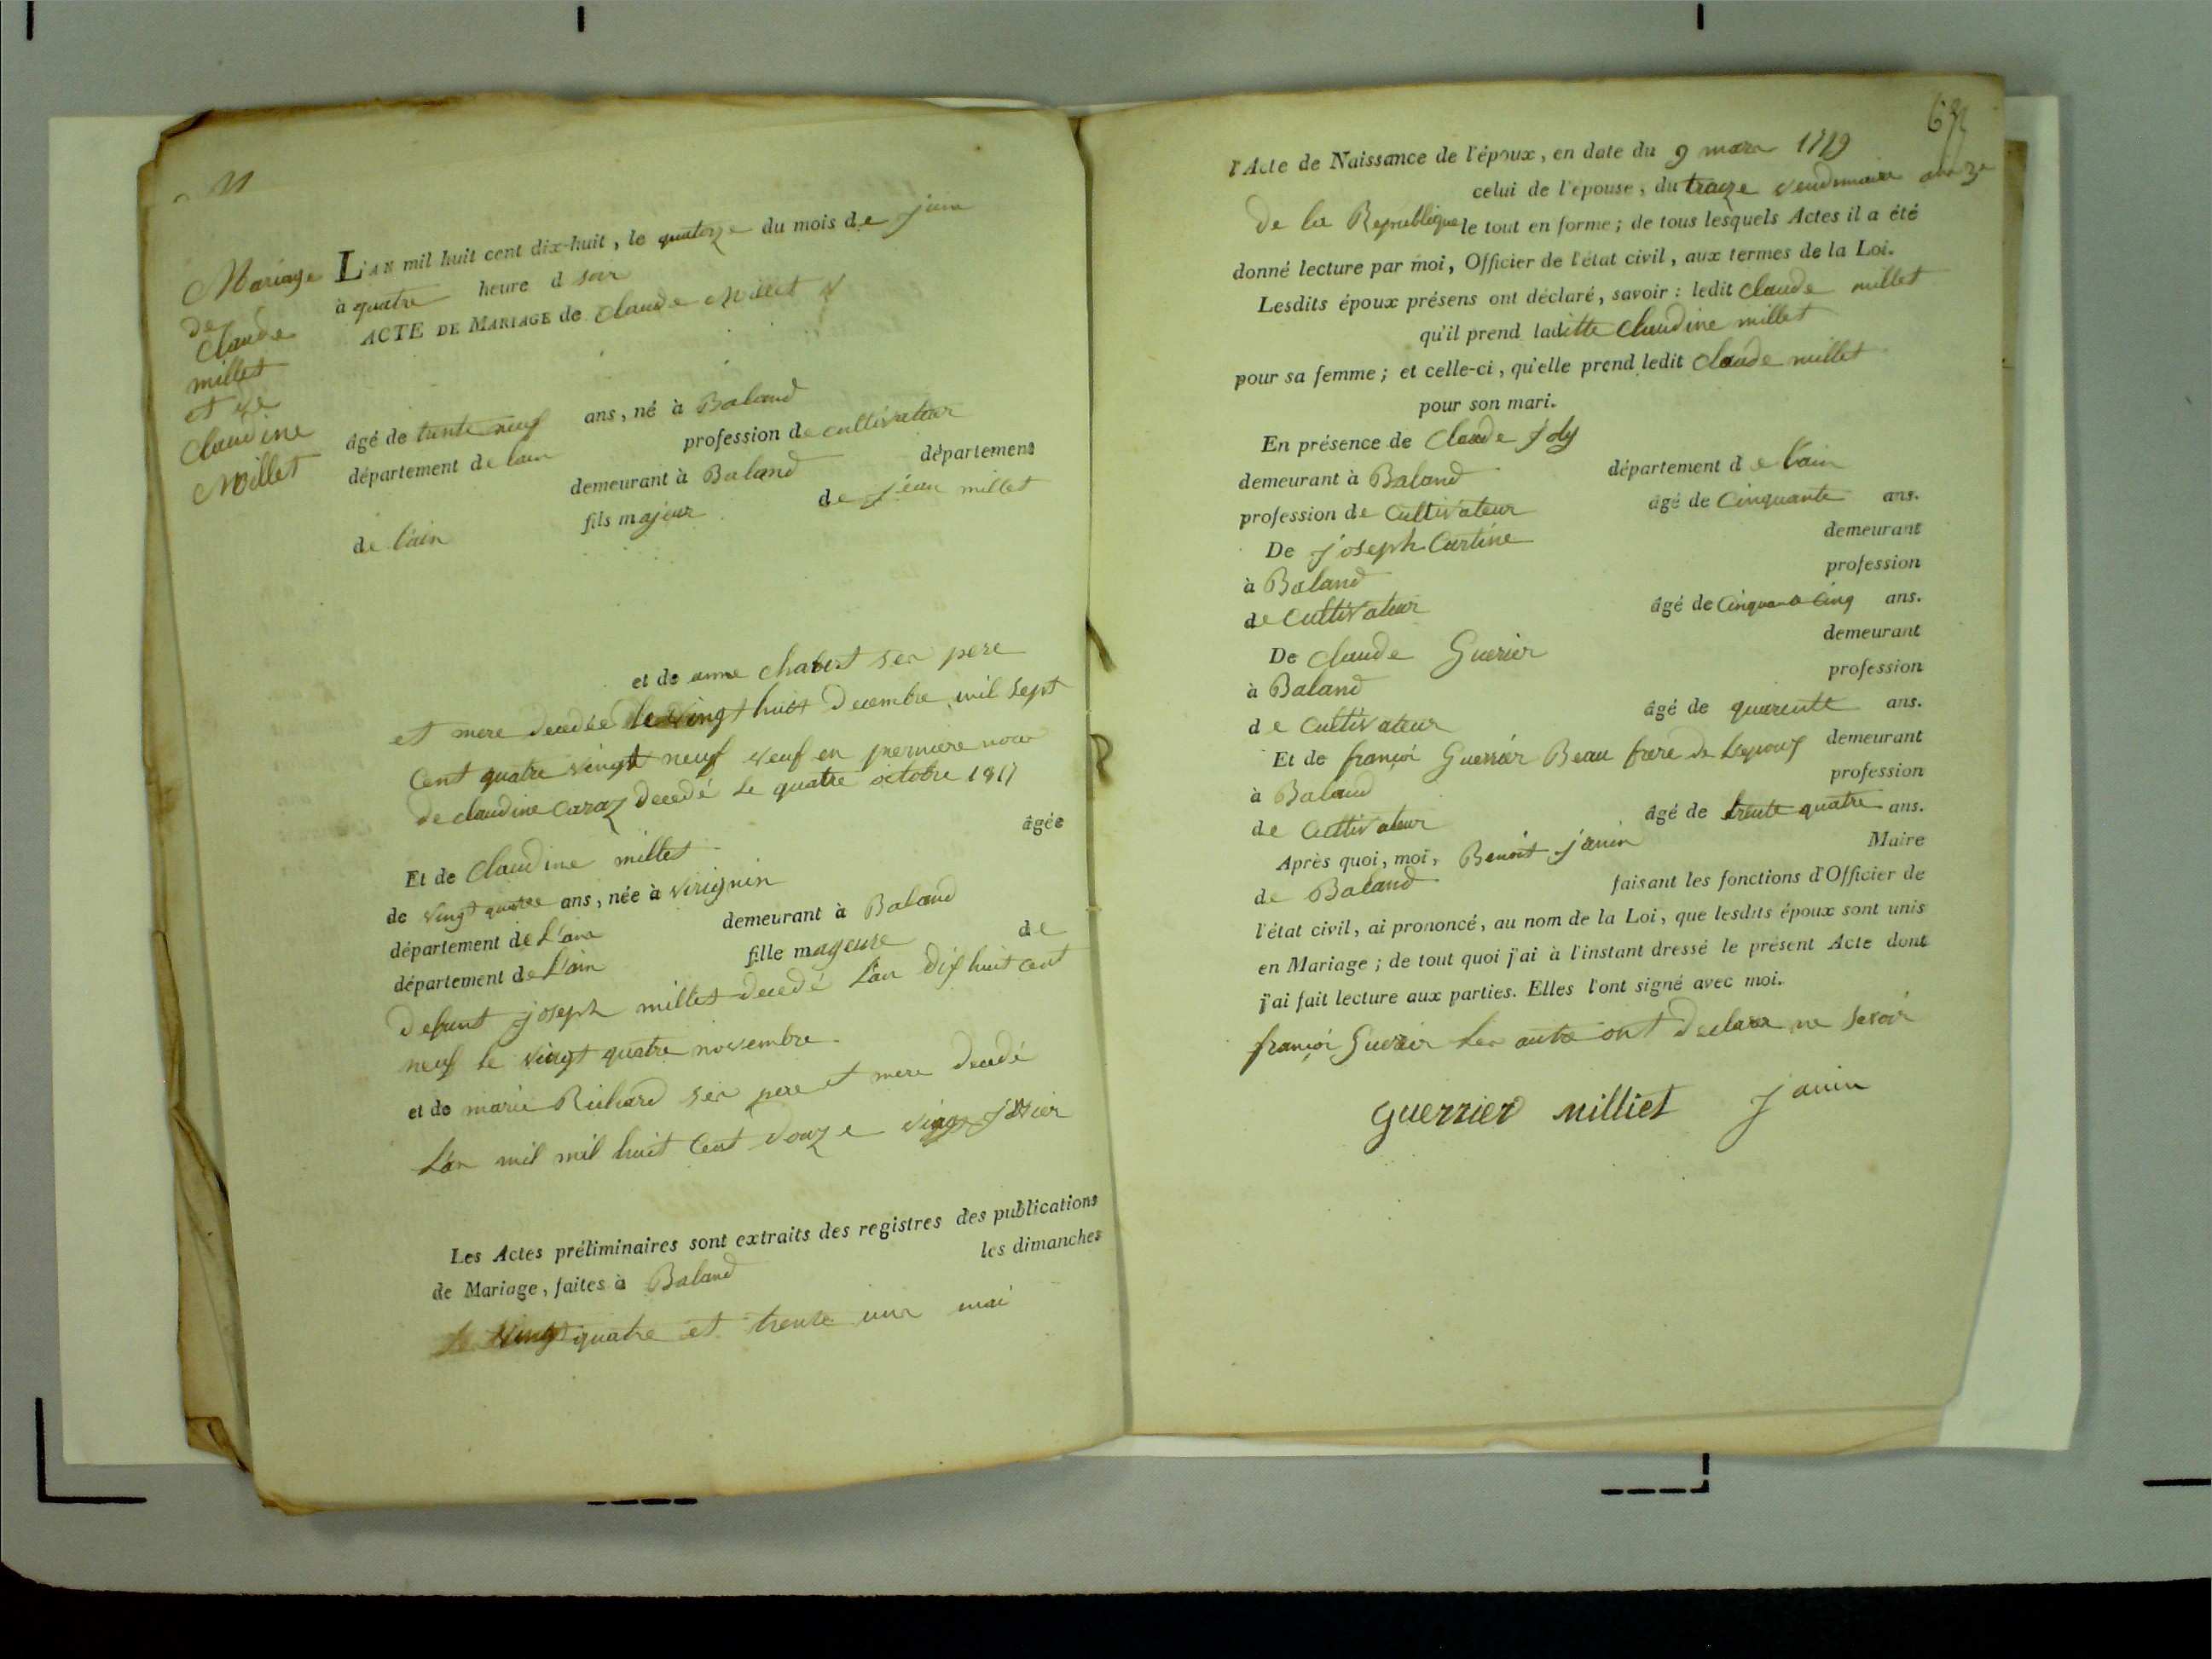 Mariage
de
Claude
millet
et de
Claudine
Millet
L'AN mil huit cent dix-huit, le quatorze du mois de juin
à quatre heure d soir
ACTE DE MARIAGE de Claude Millet
âgé de trente neuf ans, né à Baland
département de lain profession de cultivateur
demeurant à Baland département
de l'ain fils majeur de jean millet
et de anne chabert ses pere
et mere decedée le vingt huit decembre mil sept
Cent quatre vingt neuf veuf en permiere noce
de claudine Caraz decedé le quatre octobre 1817
Et de Claudine millet âgée
de vingt quatre ans, née à virignin
département de L'ain demeurant à Baland
département de L'ain fille mageure de
defunt joseph millet decedé L'an dix huit cent
neuf le vingt quatre novembre
et de marie Richard ses pere et mere decedé
L'an mil mil huit Cent douze vingt
Les Actes préliminaires sont extraits des registres des publications
de Mariage, faites à Baland les dimanches
le vingt quatre et trente un mai
l'Acte de Naissance de l'époux, en date du 9 mars 1779
celui de l'épouse, du traize vendemaire an 3e
de la Republique le tout en forme; de tous lesquels Actes il a été
donné lecture par moi, Officier de l'état civil, aux termes de la Loi.
Lesdits époux présens ont déclaré, savoir: ledit Claude millet
qu'il prend laditte Claudine millet
pour sa femme; et celle-ci, qu'elle prend ledit Claude millet
pour son mari.
En présence de Claude joly
demeurant à Baland département de l'ain
profession de Cultivateur âgé de Cinquante ans.
De joseph Cartine demeurant
à Baland profession
de Cultivateur âgé de Cinquante Cinq ans.
De Claude Guerier demeurant
à Baland profession
de Cultivateur âgé de quarente ans.
Et de françoi Guerrier Beau frere de Lepoux demeurant
à Baland profession
de Cultivateur âgé de trente quatre ans.
Après quoi, moi, Benoit janin Maire
de Baland faisant les fonctions d'Officier de
l'état civil, ai prononcé, au nom de la Loi, que lesdits époux sont unis
en Mariage; de tout quoi j'ai à l'instant dressé le présent Acte dont
j'ai fait lecture aux parties. Elles l'ont signé avec moi.
françoi Guerier Les autre ont declare ne savoir
guerrier milliet janin